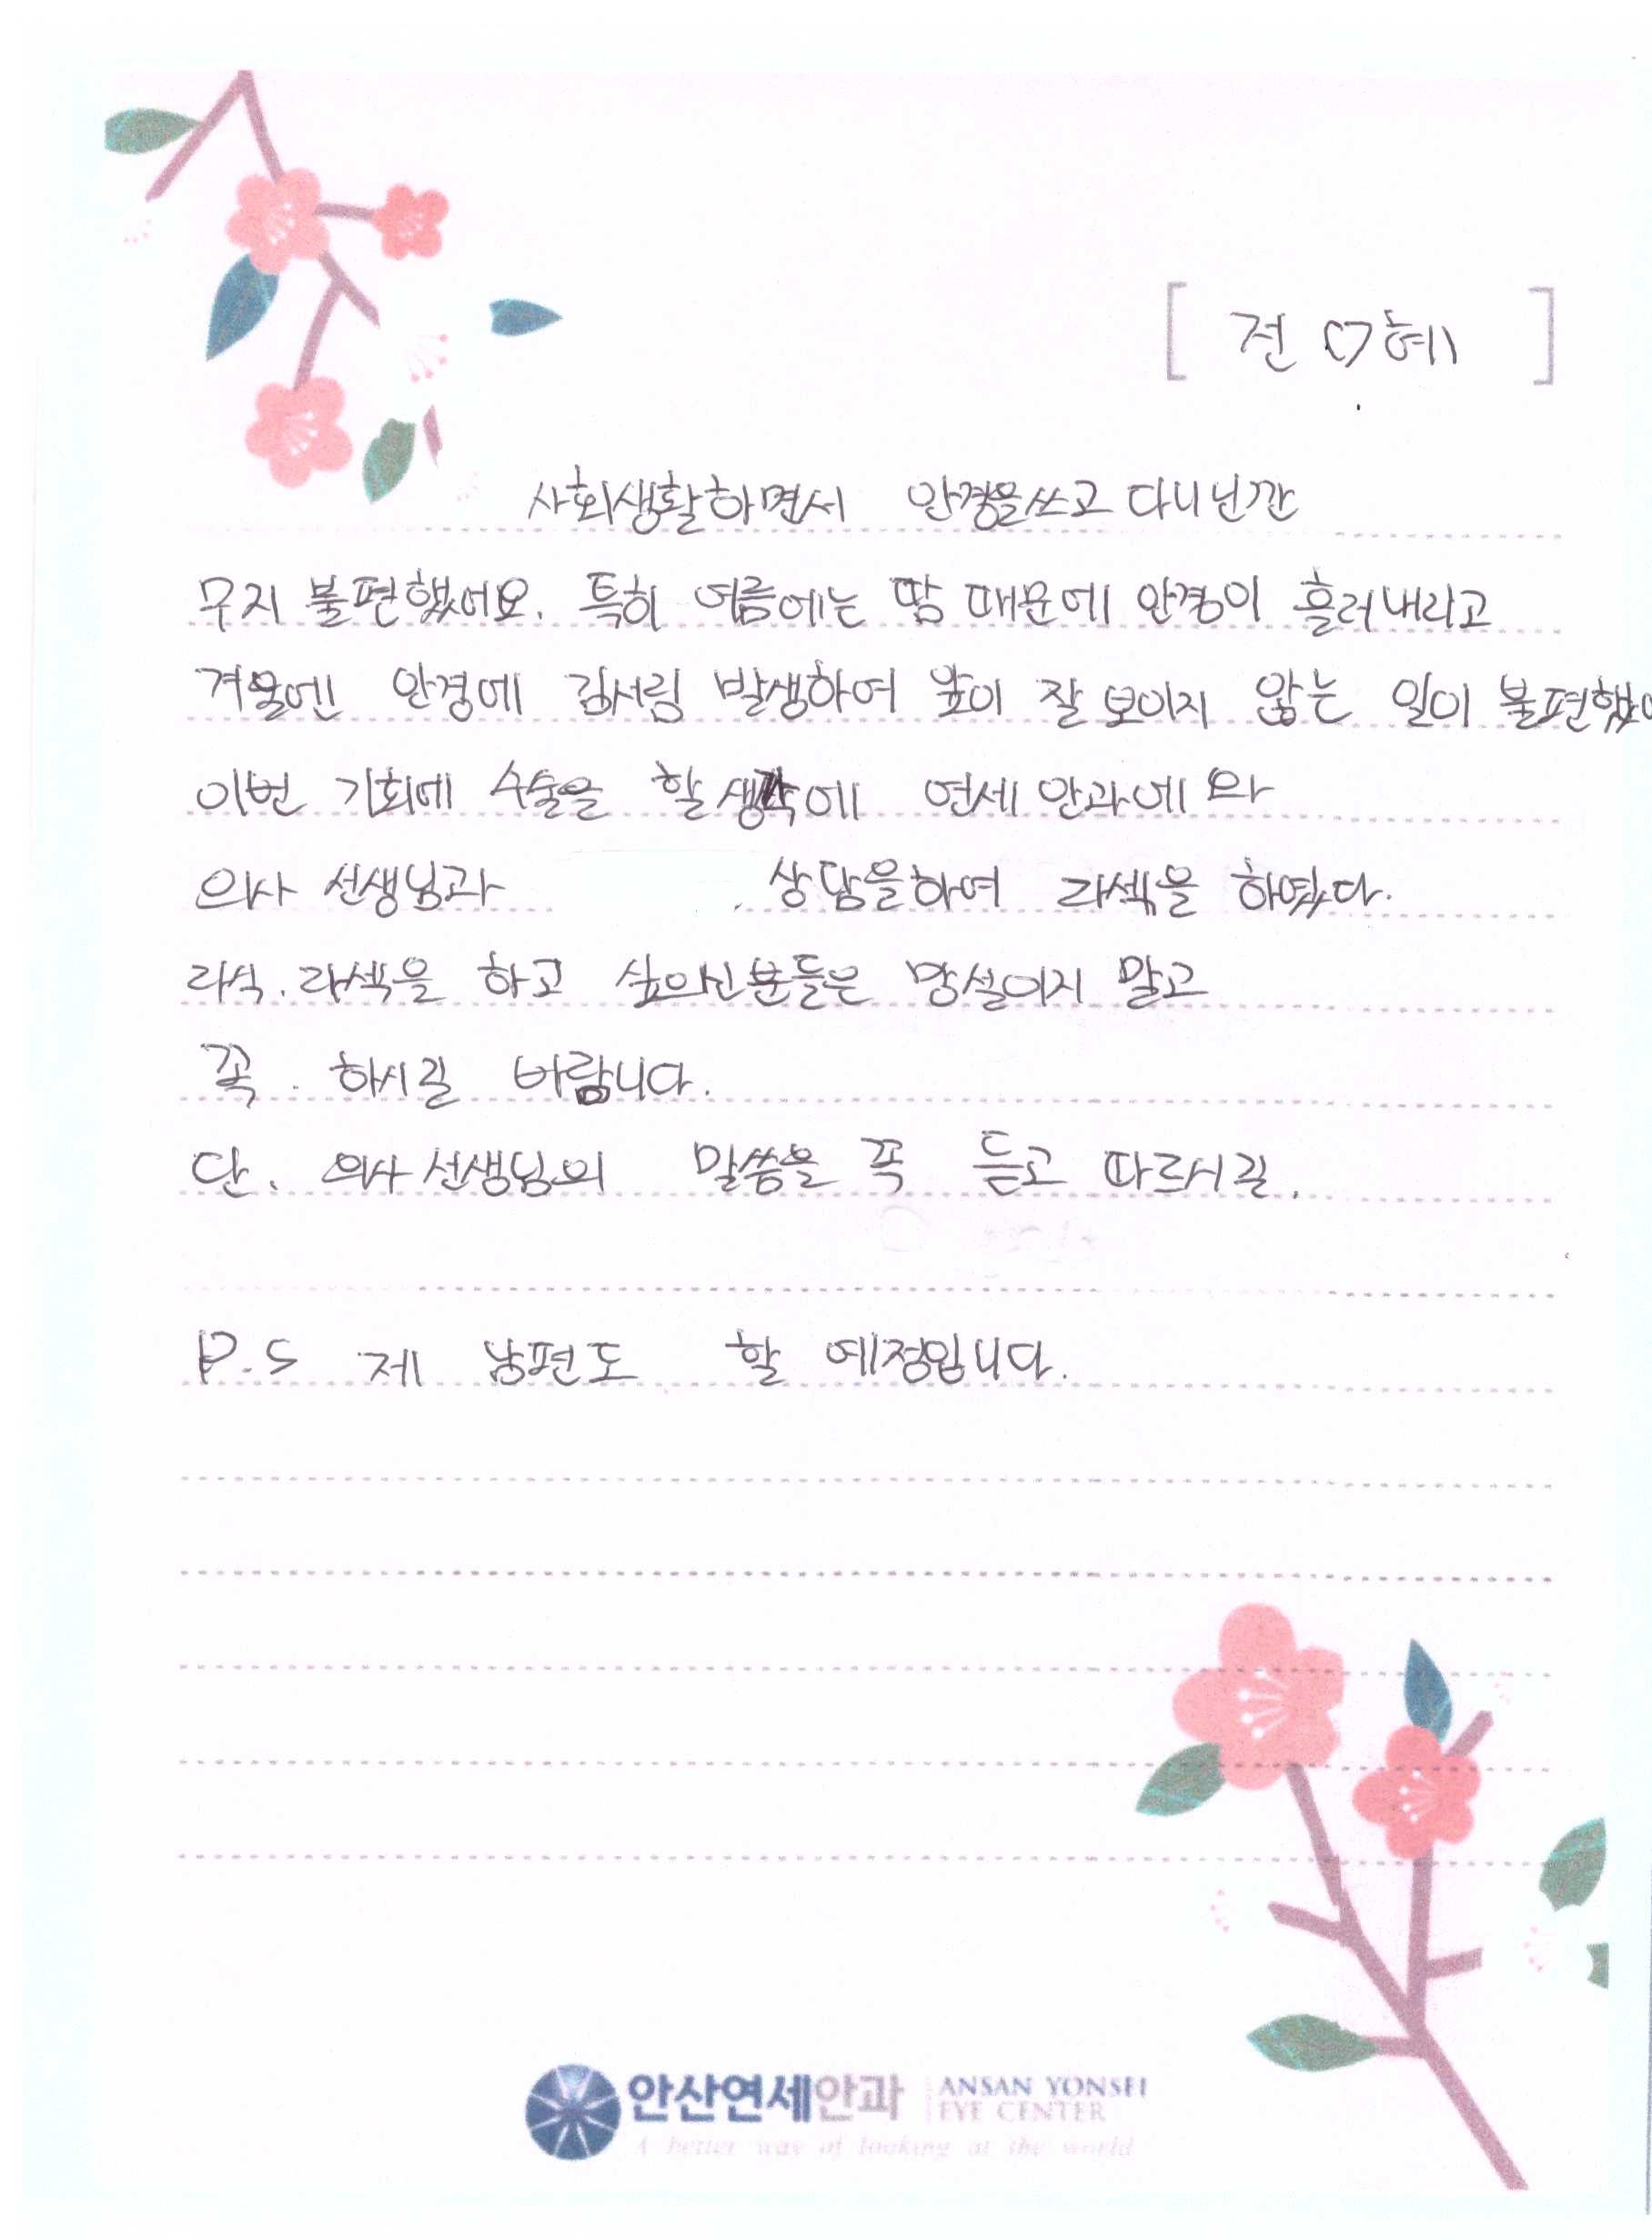 [ 전 ♡ 혜 ]
사회생활하면서 안경을쓰고 다니닌깐
무지 불편했어요. 특히 여름에는 땀 때문에 안경이 흘러내리고
겨울엔 안경에 김서림 발생하여 앞이 잘 보이지 않는 일이 불편했어
이번 기회에 수술을 할 생각에 연세 안과에 와
의사 선생님과 상담을하여 라섹을 하였다.
라식. 라섹을 하고 싶으신분들은 망설이지 말고
꼭. 하시길 바랍니다.
단. 의사 선생님의 말씀을 꼭 듣고 따르시길.
P.S 제 남편도 할 예정입니다.
안산연세안과 ANSAN YONSEI
EYE CENTER
A better way of looking at the world